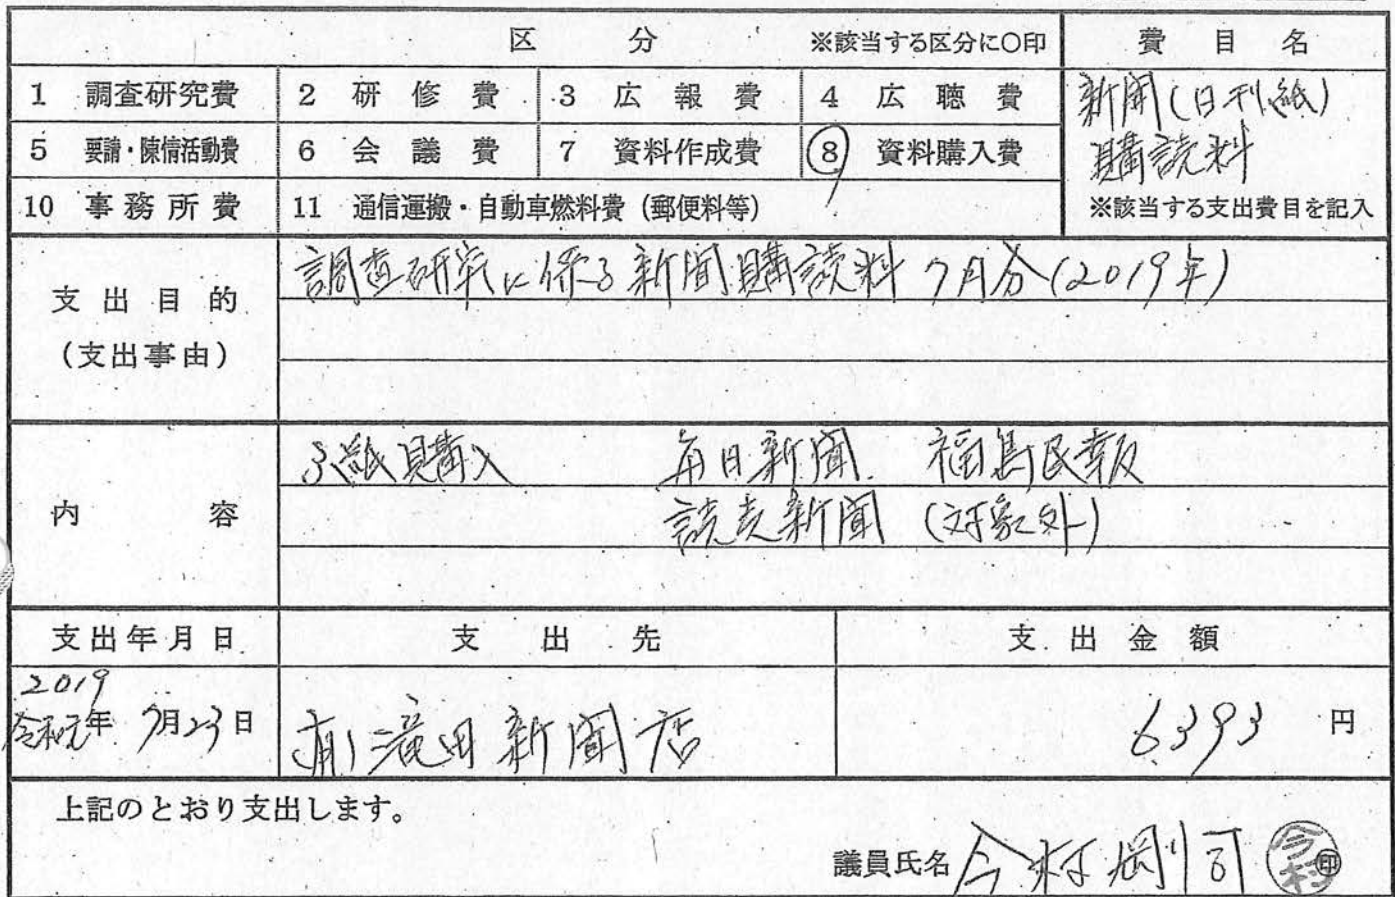 区 分 ※該当する区分に○印 費目名
1 調査研究費 2 研修費 3 広報費 4 広聴費 新聞(日刊紙)
5 要請・陳情活動費 6 会議費 7 資料作成費 8 資料購入費 購読料
10 事務所費 11 通信運搬・自動車燃料費(郵便料等) ※該当する支出費目を記入
支出目的
(支出事由)
調査研究に係る新聞購読料 7月分(2019年)
内容
3紙購入 毎日新聞 福島民報
読売新聞 (対象外)
支出年月日 支出先 支出金額
2019
令和元年 7月23日 (有)滝田新聞店 6393 円
上記のとおり支出します。
議員氏名 今村剛司 今村 印